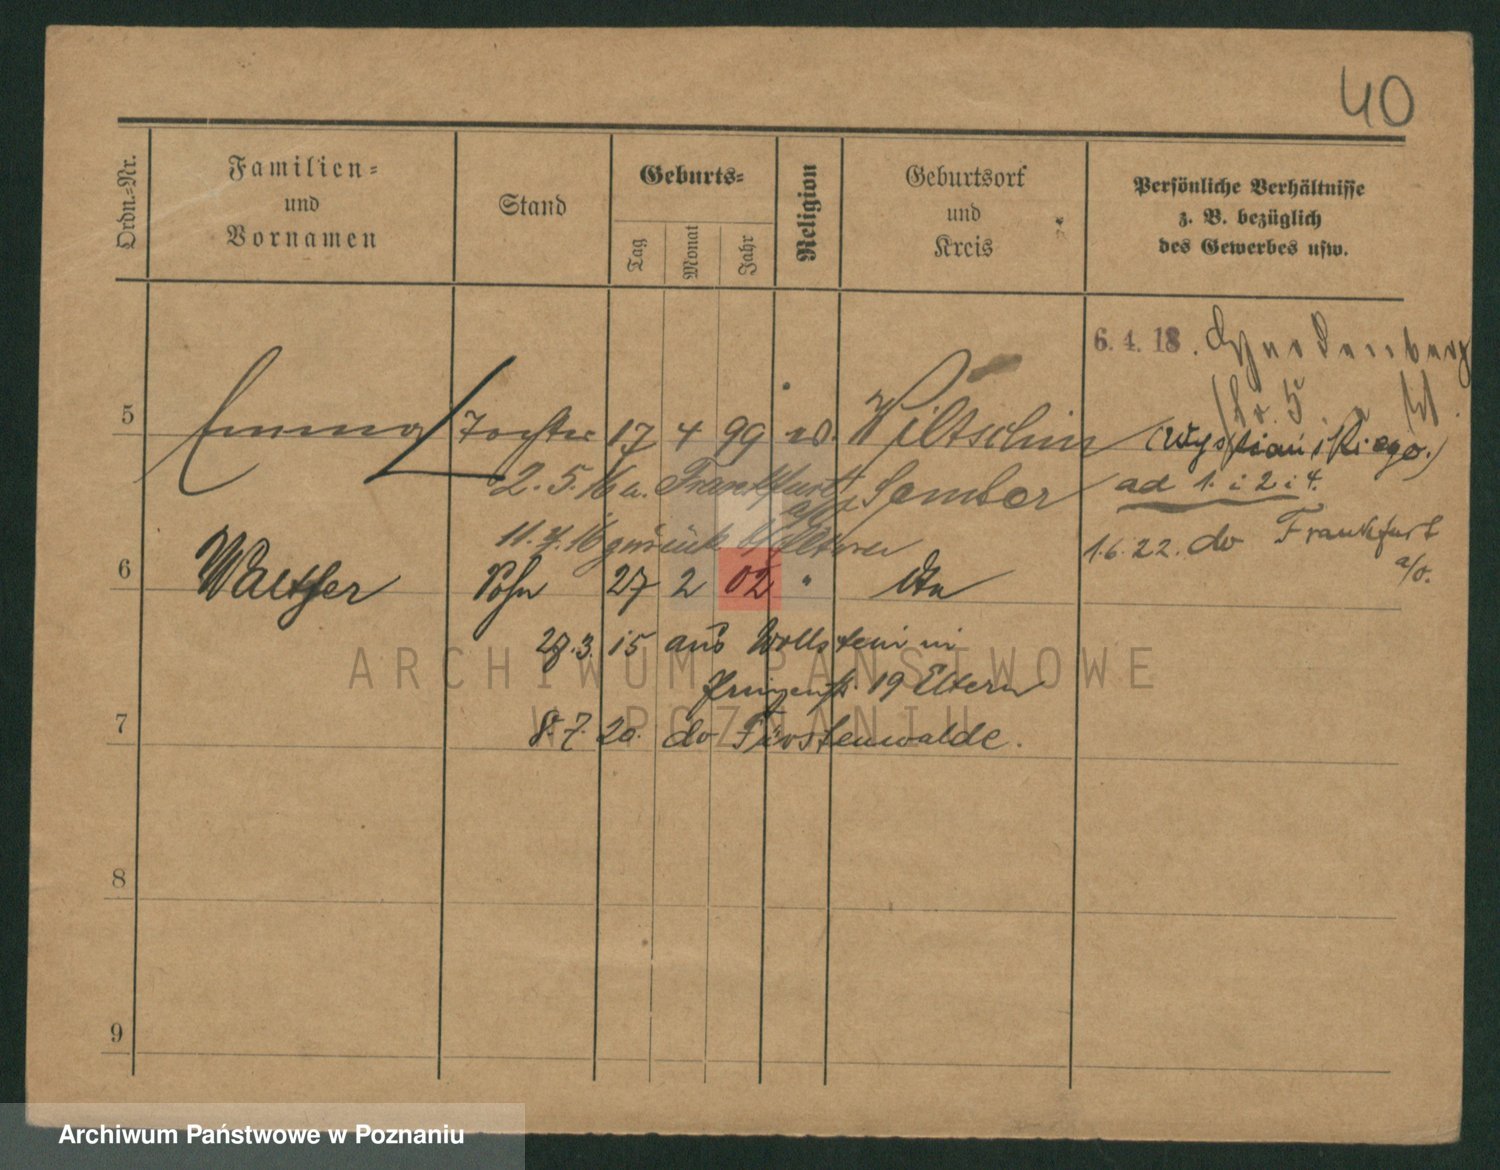 40
Ordn.=Nr.
Familien=
und
Vornamen
Stand
Geburts=
Tag
Monat
Jahr
Religion
Geburtsort
und
Kreis
Persönliche Verhältnisse
z. B. bezüglich
des Gewerbes usw.
6. 4. 18.
5
Emma Tochter 17 4 99 Wiltschin
(Wyspiańskiego.)
2. 5. 16 a. Frankfurt a/O
Samter
ad 1. i 2 i 4.
11. 7. 16 zurück Eltern
1. 6. 22. do Frankfurt
a/O.
6
Walther Sohn 27 2 02 "
28. 3. 15 aus Wollstein in
19 Eltern
7
8. 7. 20. do Fürstenwalde.
8
9
ARCHIWUM PAŃSTWOWE
W POZNANIU
Archiwum Państwowe w Poznaniu